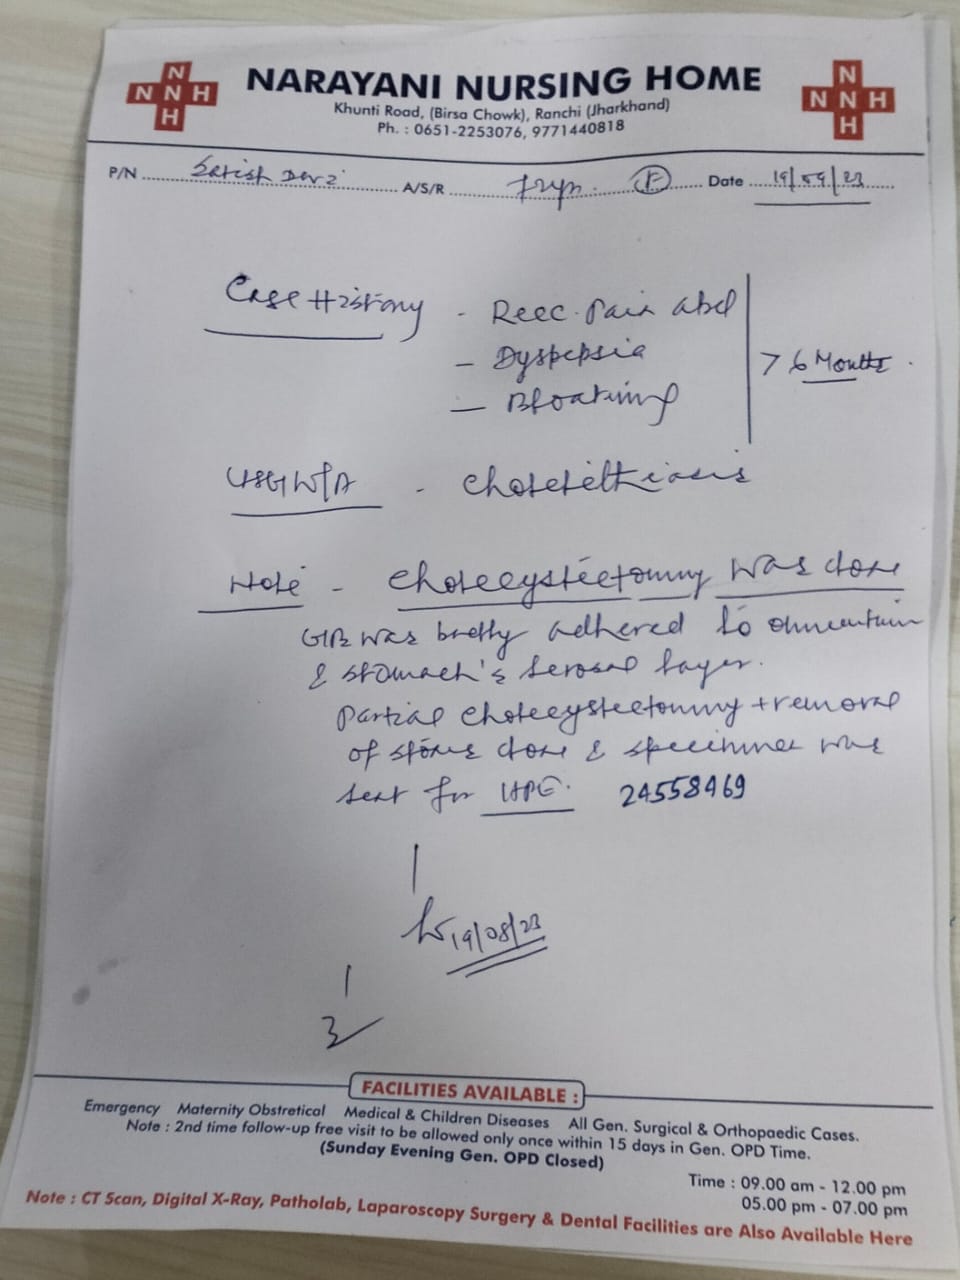 N
N N H
H
NARAYANI NURSING HOME
Khunti Road, (Birsa Chowk), Ranchi (Jharkhand)
Ph. : 0651-2253076, 9771440818
N
N N H
H
P/N ..... Satish Devi ..... A/S/R ..... (F) ..... Date ..... 19/09/23
Case History - Recc. Pain abd
- Dyspepsia
- Bloating
> 6 Months.
USG W/A - Cholelithiasis
Note - Cholecystectomy was done
GB was badly adhered to omentum
& stomach's serosal layer.
Partial cholecystectomy + removal
of stone done & specimen was
sent for HPE. 24558469
19/08/23
FACILITIES AVAILABLE :
Emergency Maternity Obstretical Medical & Children Diseases All Gen. Surgical & Orthopaedic Cases.
Note : 2nd time follow-up free visit to be allowed only once within 15 days in Gen. OPD Time.
(Sunday Evening Gen. OPD Closed)
Time : 09.00 am - 12.00 pm
05.00 pm - 07.00 pm
Note : CT Scan, Digital X-Ray, Patholab, Laparoscopy Surgery & Dental Facilities are Also Available Here